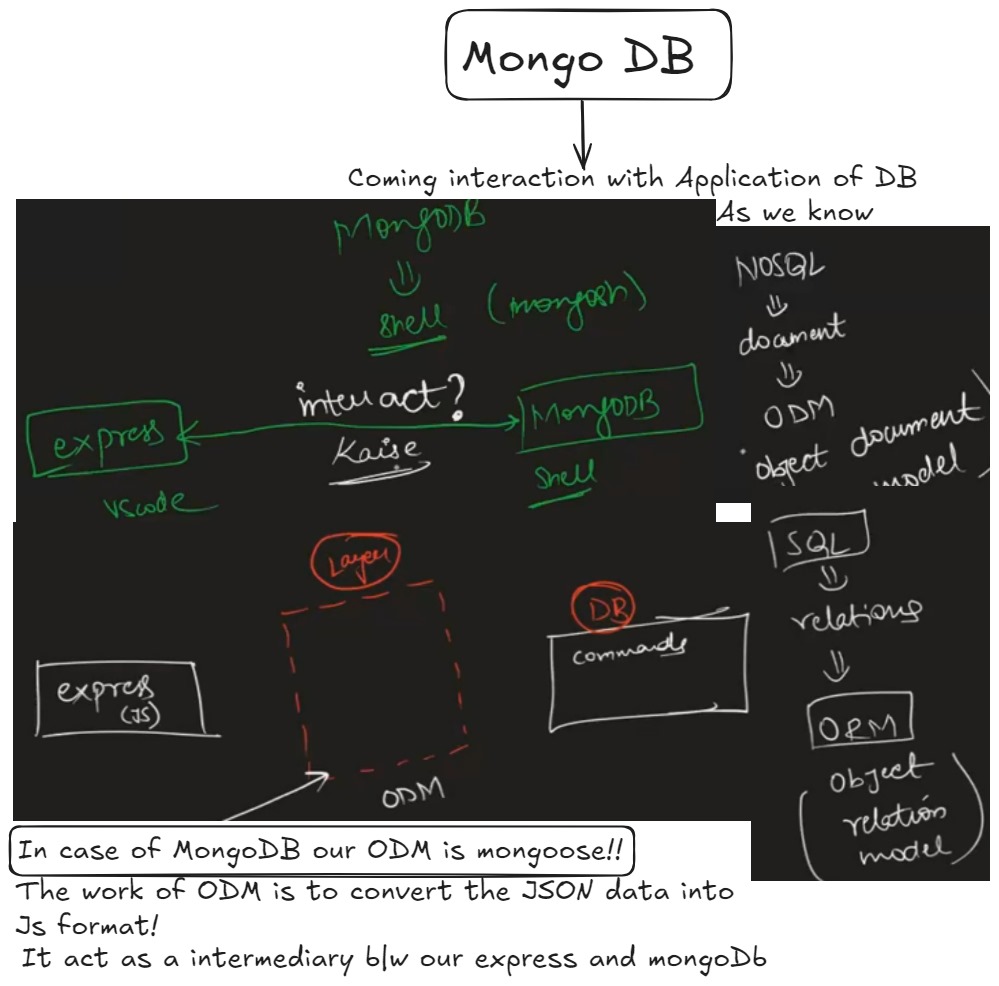 Mongo DB
Coming interaction with Application of DB
As we know
MongoDB
shell (mongosh)
interact?
express
MongoDB
Kaise
vscode
Shell
NOSQL
document
ODM
object document
model
Layer
DB
commands
express
(JS)
ODM
SQL
relations
ORM
Object
relation
model
In case of MongoDB our ODM is mongoose!!
The work of ODM is to convert the JSON data into
Js format!
It act as a intermediary b/w our express and mongoDb